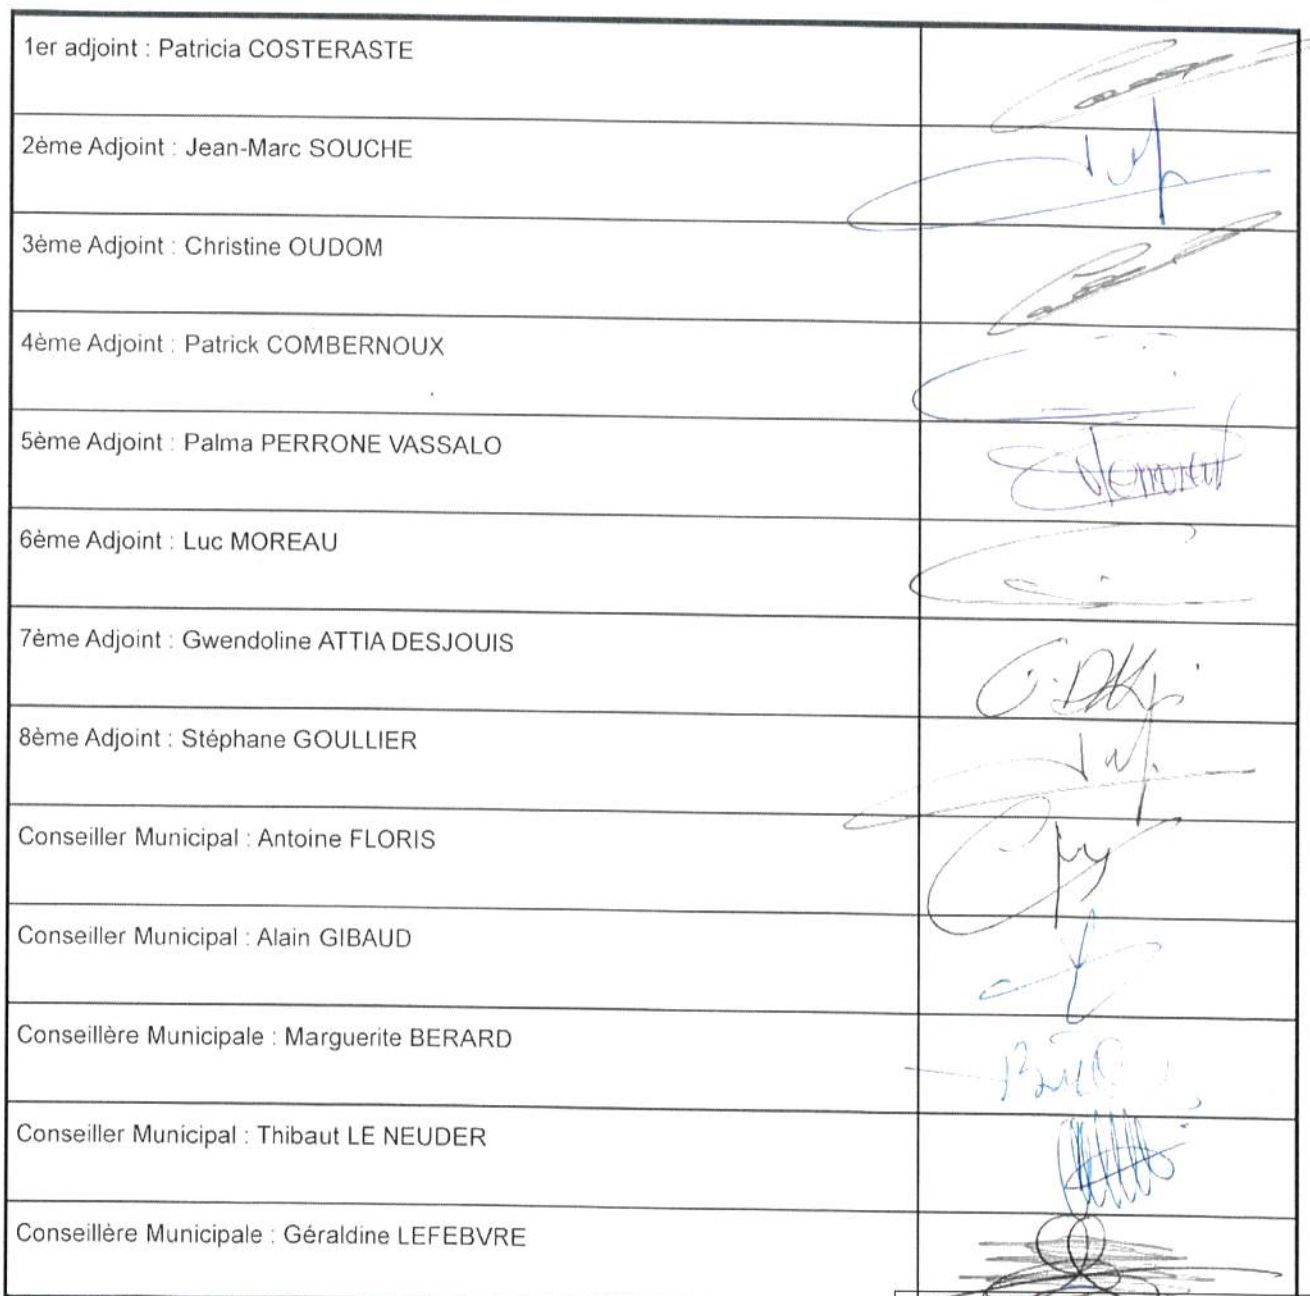 1er adjoint : Patricia COSTERASTE
2ème Adjoint : Jean-Marc SOUCHE
3ème Adjoint : Christine OUDOM
4ème Adjoint : Patrick COMBERNOUX
5ème Adjoint : Palma PERRONE VASSALO
6ème Adjoint : Luc MOREAU
7ème Adjoint : Gwendoline ATTIA DESJOUIS
8ème Adjoint : Stéphane GOULLIER
Conseiller Municipal : Antoine FLORIS
Conseiller Municipal : Alain GIBAUD
Conseillère Municipale : Marguerite BERARD
Conseiller Municipal : Thibaut LE NEUDER
Conseillère Municipale : Géraldine LEFEBVRE